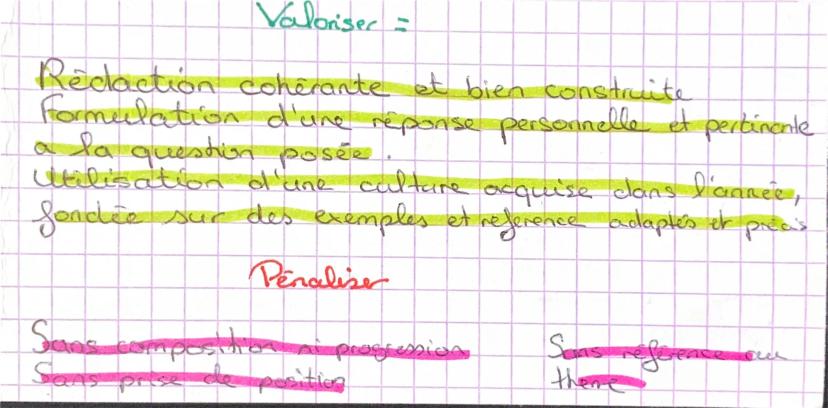 Valoriser =
Rédaction cohérante et bien construite
Formulation d'une réponse personnelle et pertinente
a la question posée.
Utilisation d'une culture acquise dans l'année,
fondée sur des exemples et reference adaptés et précis
Pénaliser
Sans composition ni progression
Sans prise de position
Sans référence au
theme